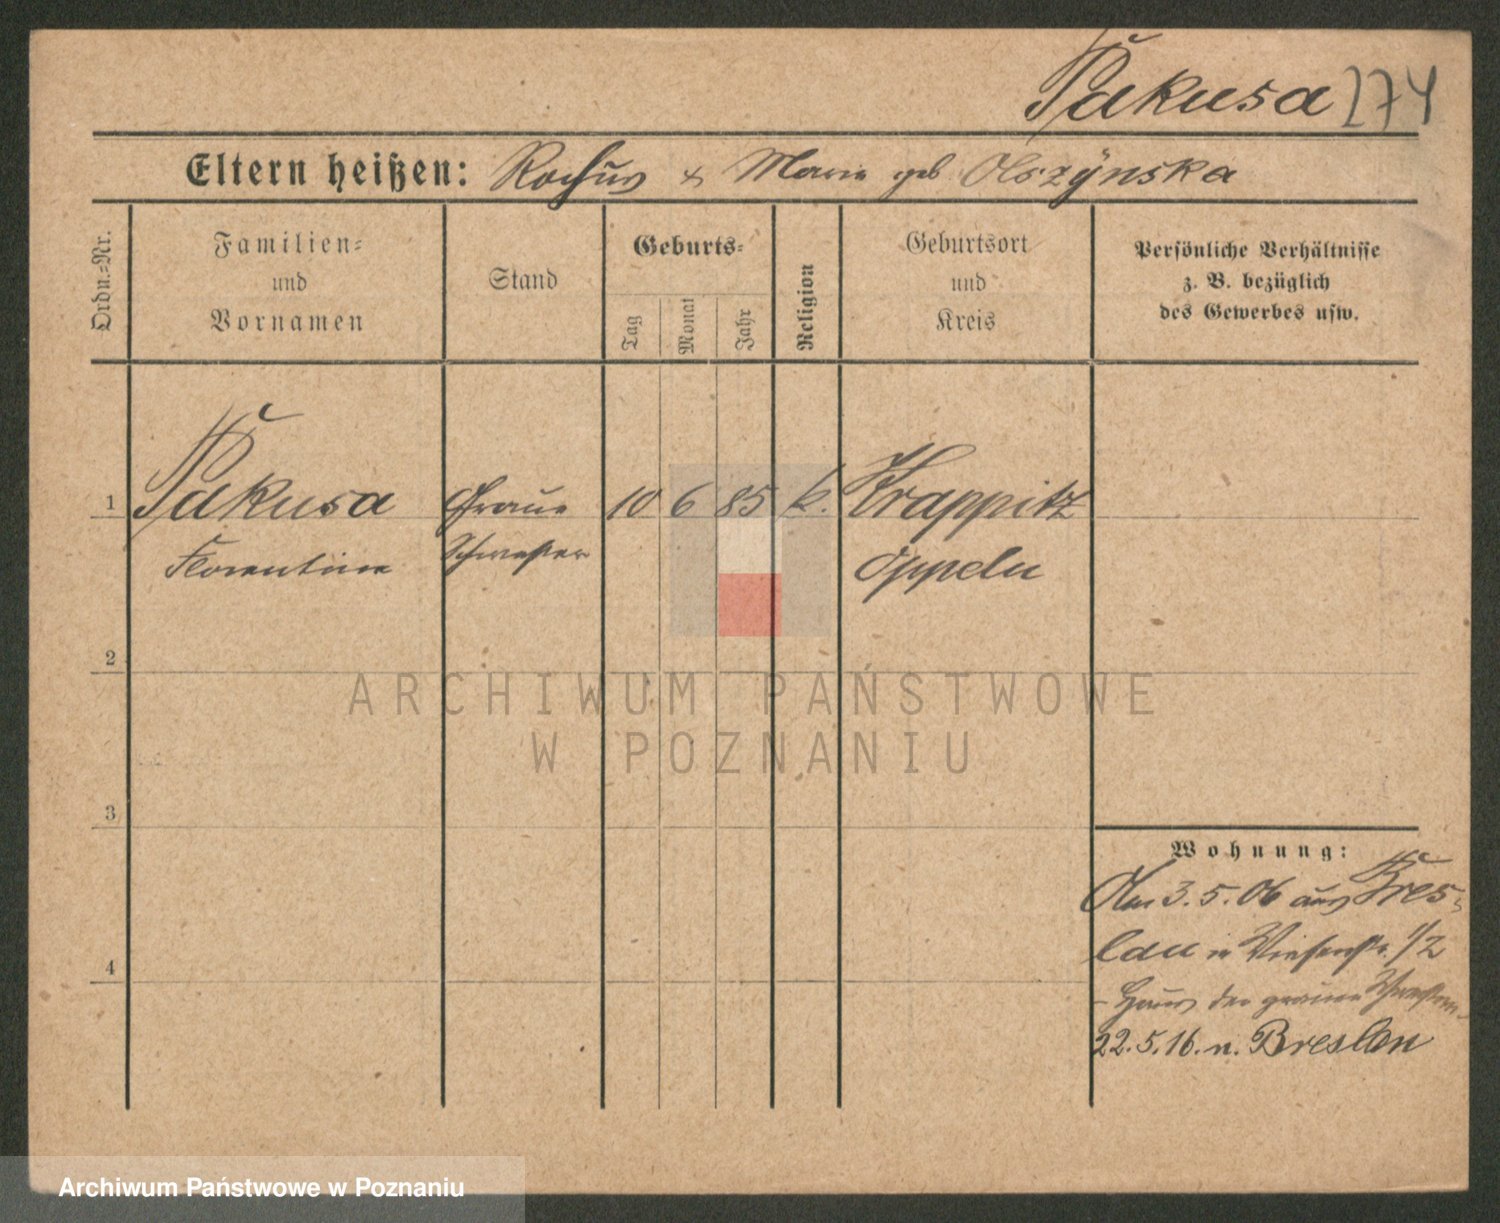 Pakusa 274
Eltern heißen: Rochus & Marie geb Olszynska
Ordn.-Nr.
Familien-
und
Vornamen
Stand
Geburts-
Tag
Monat
Jahr
Religion
Geburtsort
und
Kreis
Persönliche Verhältnisse
z. B. bezüglich
des Gewerbes usw.
1 Pakusa Graue 10 6 85 k. Krappitz
Florentine Schwester Oppeln
2
3
4
Wohnung:
Am 3.5.06 aus Bres-
lau n Wiesenstr. 1/2
- Haus der grauen Schwestern
22.5.16. n. Breslau
ARCHIWUM PAŃSTWOWE
W POZNANIU
Archiwum Państwowe w Poznaniu